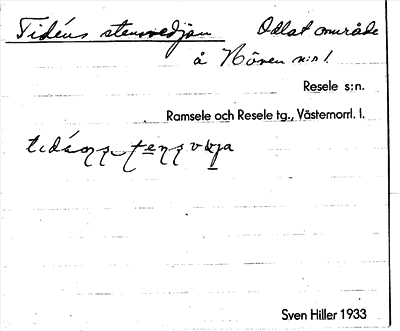 Tidéns stensvedjan Odlat område
å Nören n:r 1.
Resele s:n.
Ramsele och Resele tg., Västernorrl. l.
Sven Hiller 1933